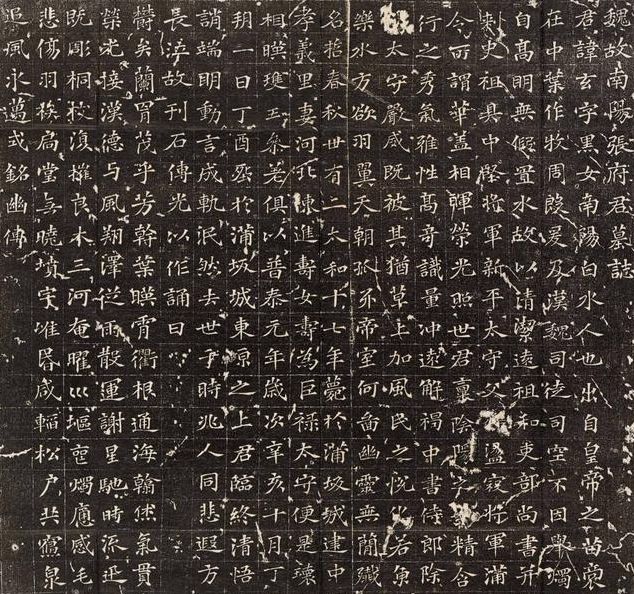 魏故南陽張府君墓誌
君諱玄字黑女南陽白水人也出自皇帝之苗裔
在中葉作牧周殷爰及漢魏司徒司空不因舉燭
自高明無假置水故以清潔遠祖和吏部尚書并
刺史祖具中堅將軍新平太守父盪寇將軍蒲
令所謂華蓋相暉榮光照世君稟陰陽之精含
行之秀氣雅性高奇識量沖遠解褐中書侍郎除
太守嚴威既被其猶草上加風民之悅化若魚
樂水方欲羽翼天朝抓牙帝室何啚幽靈無簡殲
名哲春秋卅有二太和十七年薨於蒲坂城建中
孝義里妻河北陳進壽女壽為巨祿太守便是瓌
相暎瓊玉參差俱以普泰元年歲次辛亥十月丁
朔一日丁酉塟於蒲坂城東原之上君臨終清悟
誚端明動言成軌泯然去世于時兆人同悲遐方
長泣故刊石傳光以作誦曰
鬱矣蘭冑茂乎芳幹葉暎霄衢根通海翰倏氣貫
榮光接漢德与風翔澤從雨散運謝星馳時流迅
既彫桐枝復摧良木三河奄曜巛塸喪燭痛感毛
悲傷羽族扃堂無曉墳宇唯昏咸輀松戶共寢泉
追風永邁式銘幽傳